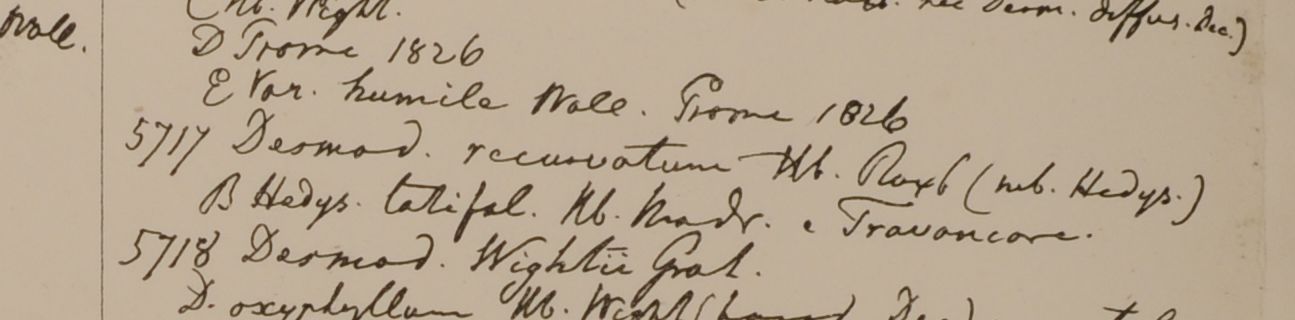 Wall.
C Hb. Wight. nec Desm. diffus. Dec.)
D Prome 1826
E Var. humile Wall. Prome 1826
5717 Desmod. recurvatum Hb. Roxb (sub. Hedys.)
B Hedys. latifol. Hb. Madr. e Travancore.
5718 Desmod. Wightii Grah.
D. oxyphyllum Hb. Wight (